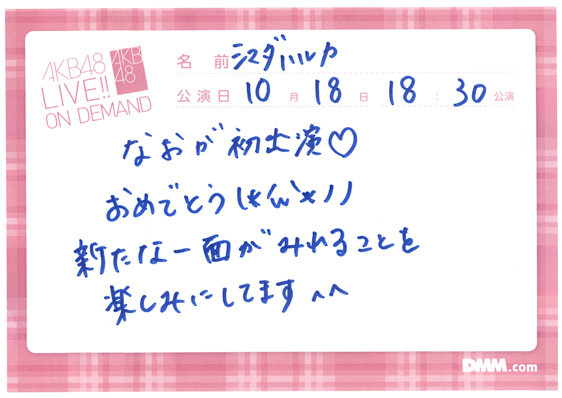 AKB48
LIVE!!
ON DEMAND
AKB
48
名 前 シマダハルカ
公演日 10 月 18 日 18 : 30 公演
なおが初出演♡
おめでとう(*'ω'*ノノ
新たな一面がみれることを
楽しみにしてます^^
DMM.com